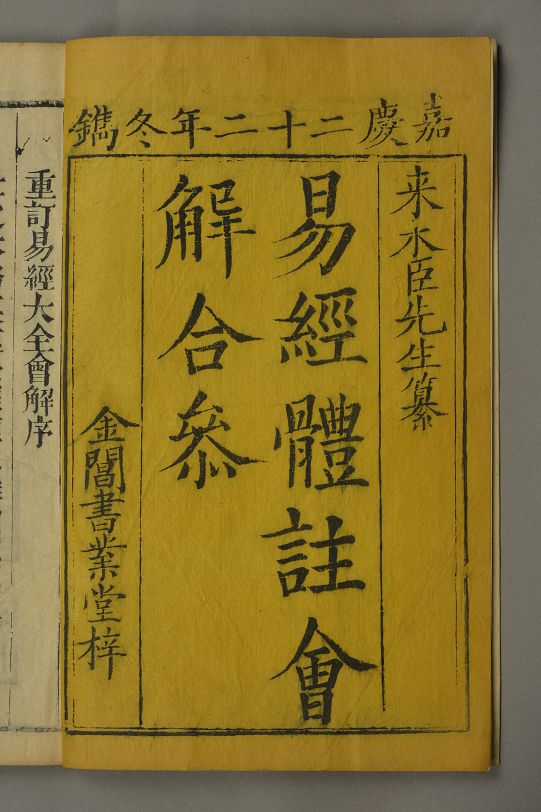 嘉慶二十二年冬鐫
来木臣先生纂
易經體註會
解合叅
金閶書業堂梓
重訂易經大全會解序